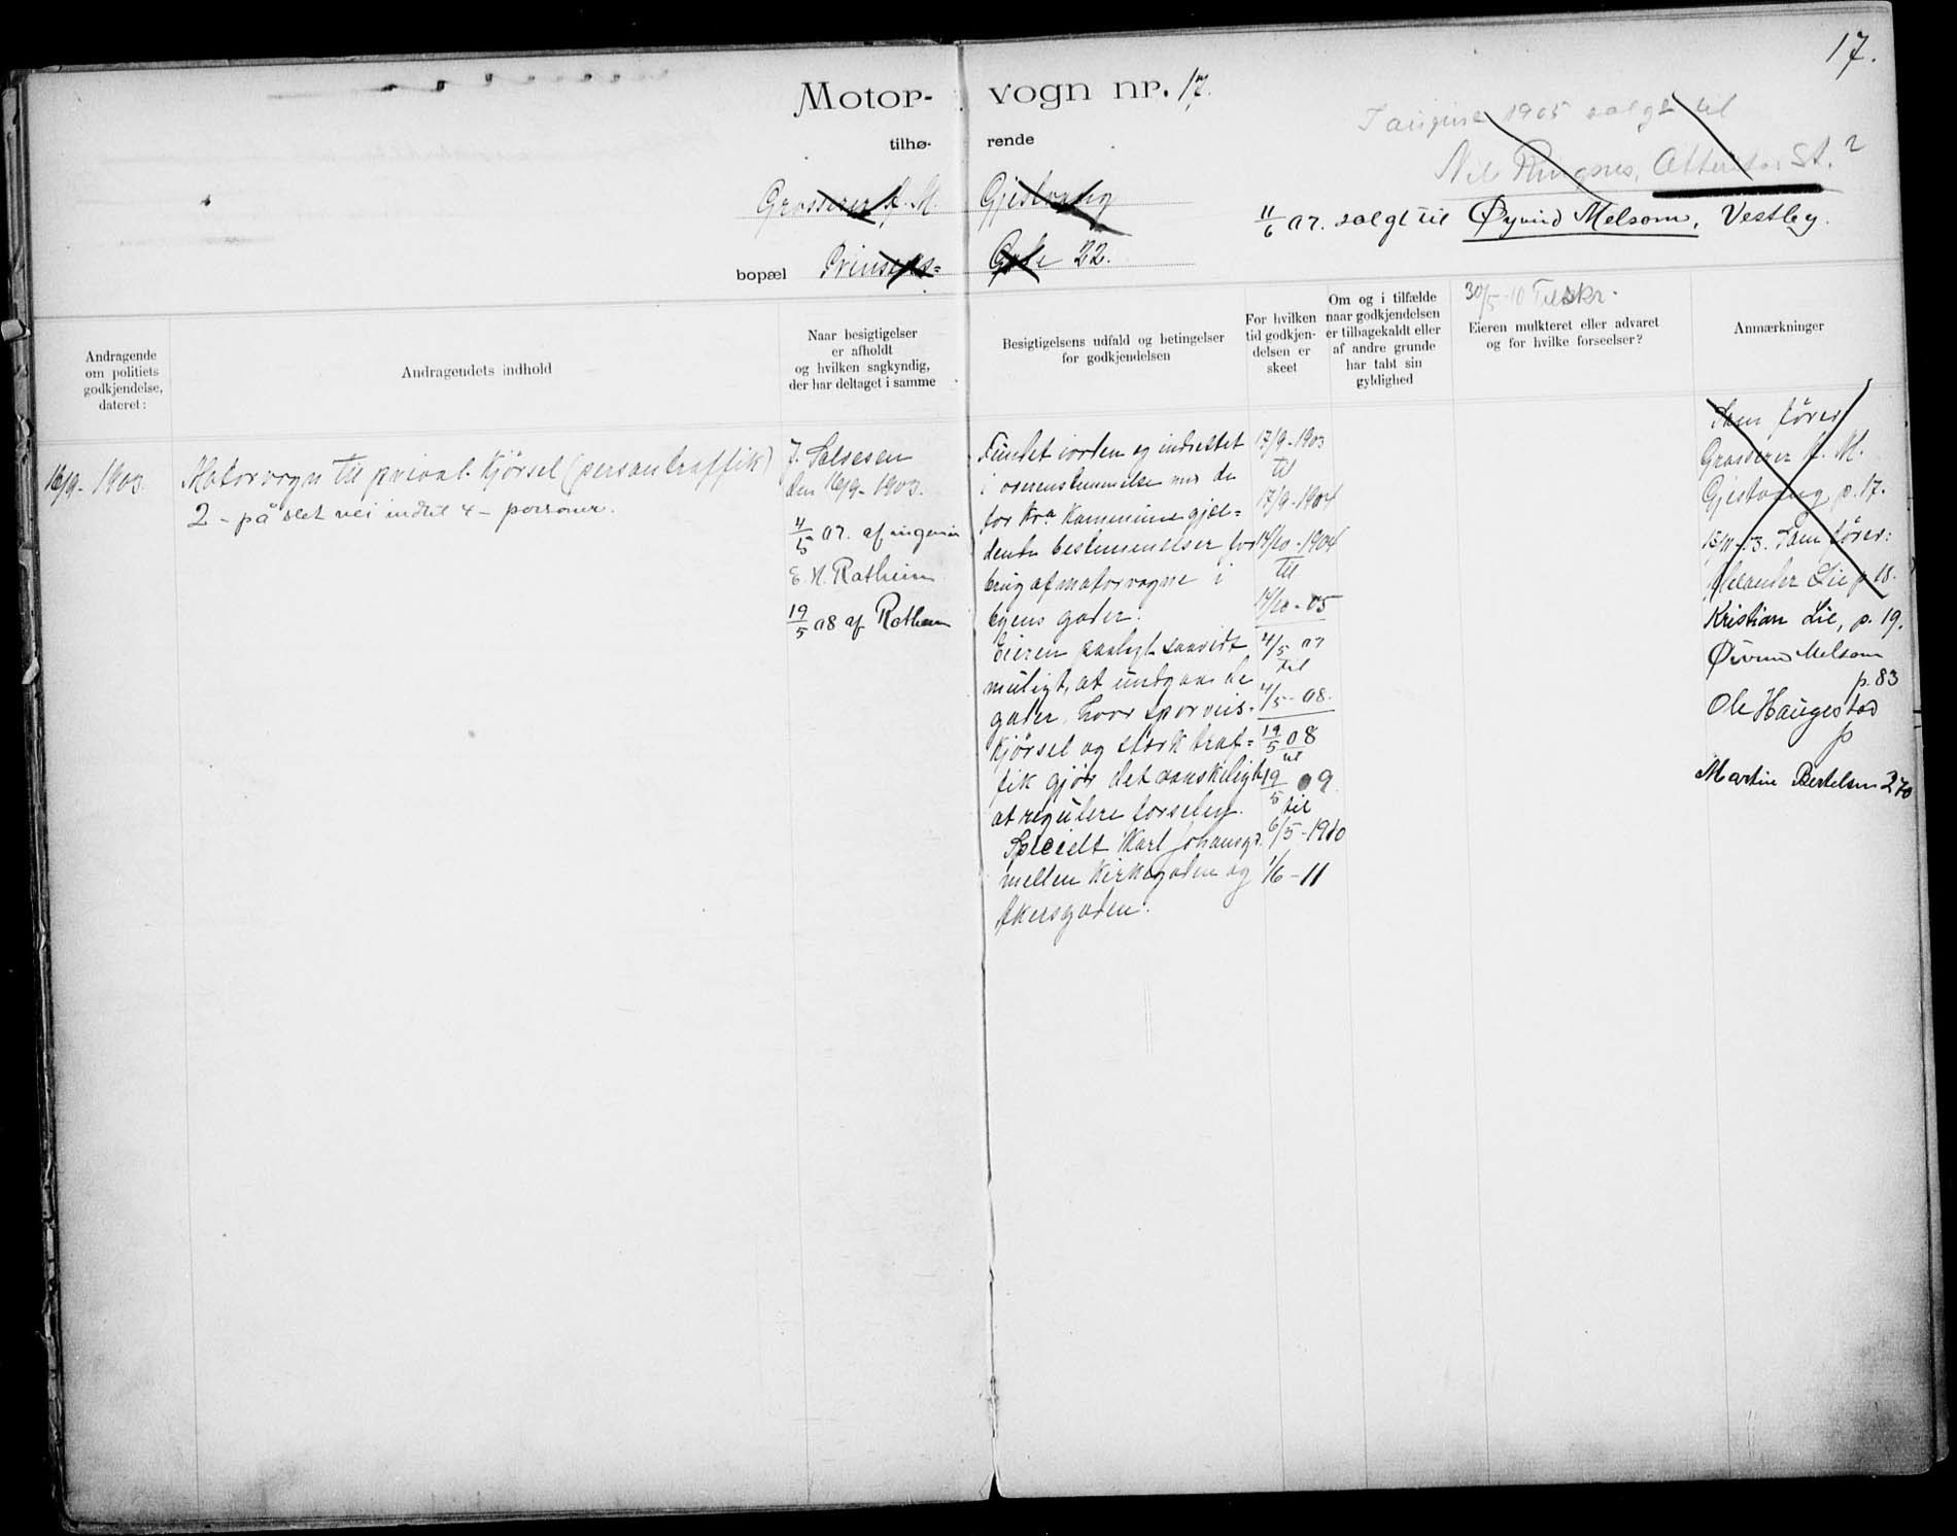 17.
Motor-vogn nr. 17.
tilhø-rende
Grosserer A. M. Gjestvang
bopæl Prinsens= Gade 22.
1905 solgt til
Nils Ringnes, St. 2
11/6 07. solgt til Øyvind Melsom, Vestby.
30/5-10 Tilskr.
Andragende
om politiets
godkjendelse,
dateret:
Andragendets indhold
Naar besigtigelser
er afholdt
og hvilken sagkyndig,
der har deltaget i samme
Besigtigelsens udfald og betingelser
for godkjendelsen
For hvilken
tid godkjen-
delsen er
skeet
Om og i tilfælde
naar godkjendelsen
er tilbagekaldt eller
af andre grunde
har tabt sin
gyldighed
Eieren mulkteret eller advaret
og for hvilke forseelser?
Anmærkninger
16/9-1903.
Motorvogn til privat kjörsel (persontraffik)
2 - på slet vei indtil 4 - personer.
J. Salvesen
den 16/9-1903.
4/5 07. af ingeniør
E. H. Rotheim
19/5 08 af Rotheim
Fundet i orden og indrettet
i overensstemmelse med de
for Kra Kommune gjæl=
dende bestemmelser for
brug af motorvogne i
byens gader.
Eieren paalagt saavidt
muligt, at undgaa de
gader, hvor sporveis-
kjörsel og stærk traf=
fik gjör det vanskeligt
at regulere færselen.
Specielt Karl Johansgd.
mellem Kirkegaden og
Akersgaden.
17/9-1903
til
17/9-1904
14/10-1904
til
14/10-05
4/5 07
til
4/5-08.
19/5 08
til
19/5 09
til
6/5-1910
1/6-11
Som förer
Grosserer A. M.
Gjestvang p. 17.
15/11-03. Som förer:
Lie p 18.
Kristian Lie, p. 19.
Øivind Melsom
p. 83
Ole Haugestad
p
Martin Bertelsen 270